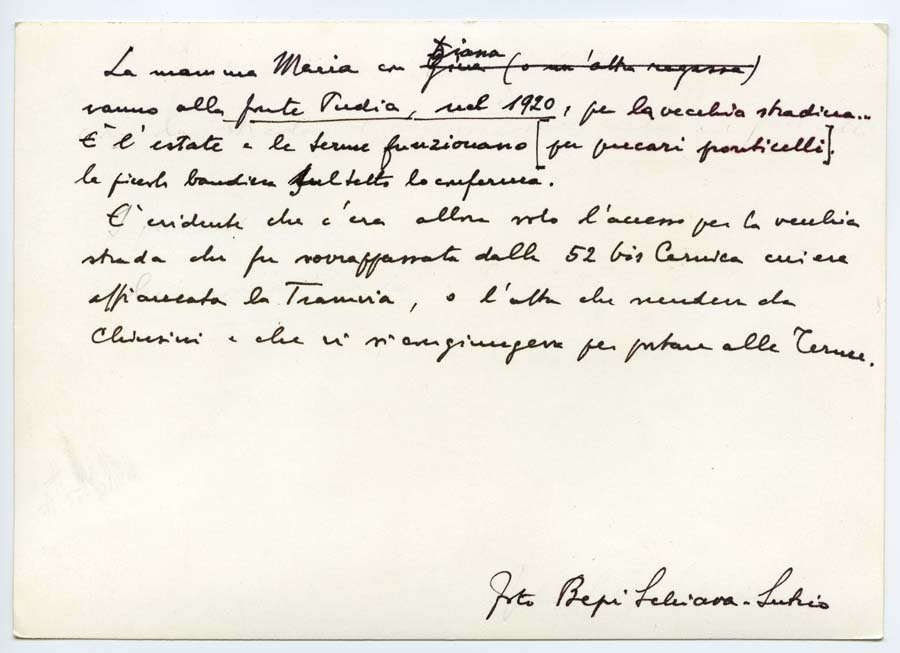 La mamma Maria con Diana Gina (o un'altra ragazza)
vanno alla fonte Pudia, nel 1920, per la vecchia stradina...
È l'estate e le terme funzionano [per precari ponticelli].
la piccola bandiera sul tetto lo conferma.
È evidente che c'era allora solo l'accesso per la vecchia
strada che fu sovrappassata dalla 52 bis Carnica cui era
affiancata la Tramvia, o l'altra che scendeva da
Chiusini e che vi si congiungeva per portare alle Terme.
foto Bepi Schiava - Sutrio